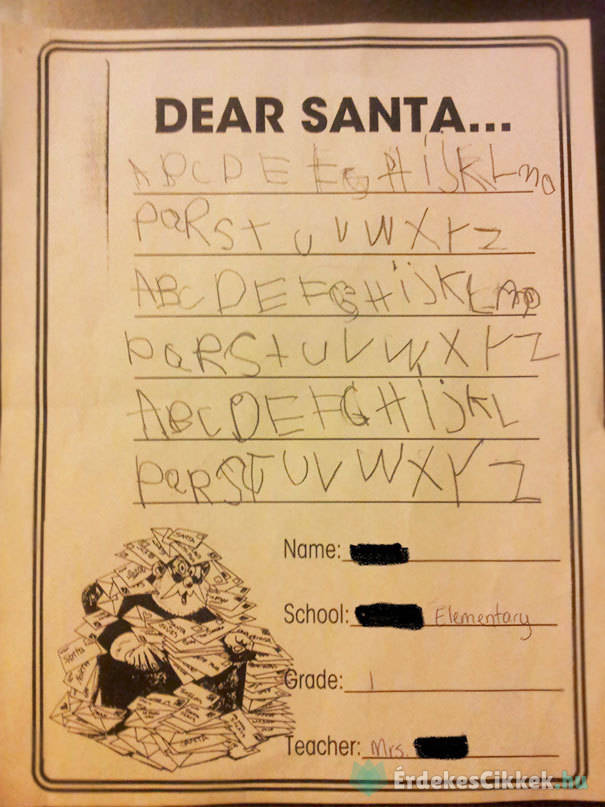 DEAR SANTA...
ABCDEFGHIJKLmno
PQRStUVWXYZ
ABCDEFGHIJKLMNO
PQRStUVWXYZ
ABCDEFGHIJKL
PQRSTUVWXYZ
Name:
School: Elementary
Grade: 1
Teacher: Mrs.
ÉrdekesCikkek.hu